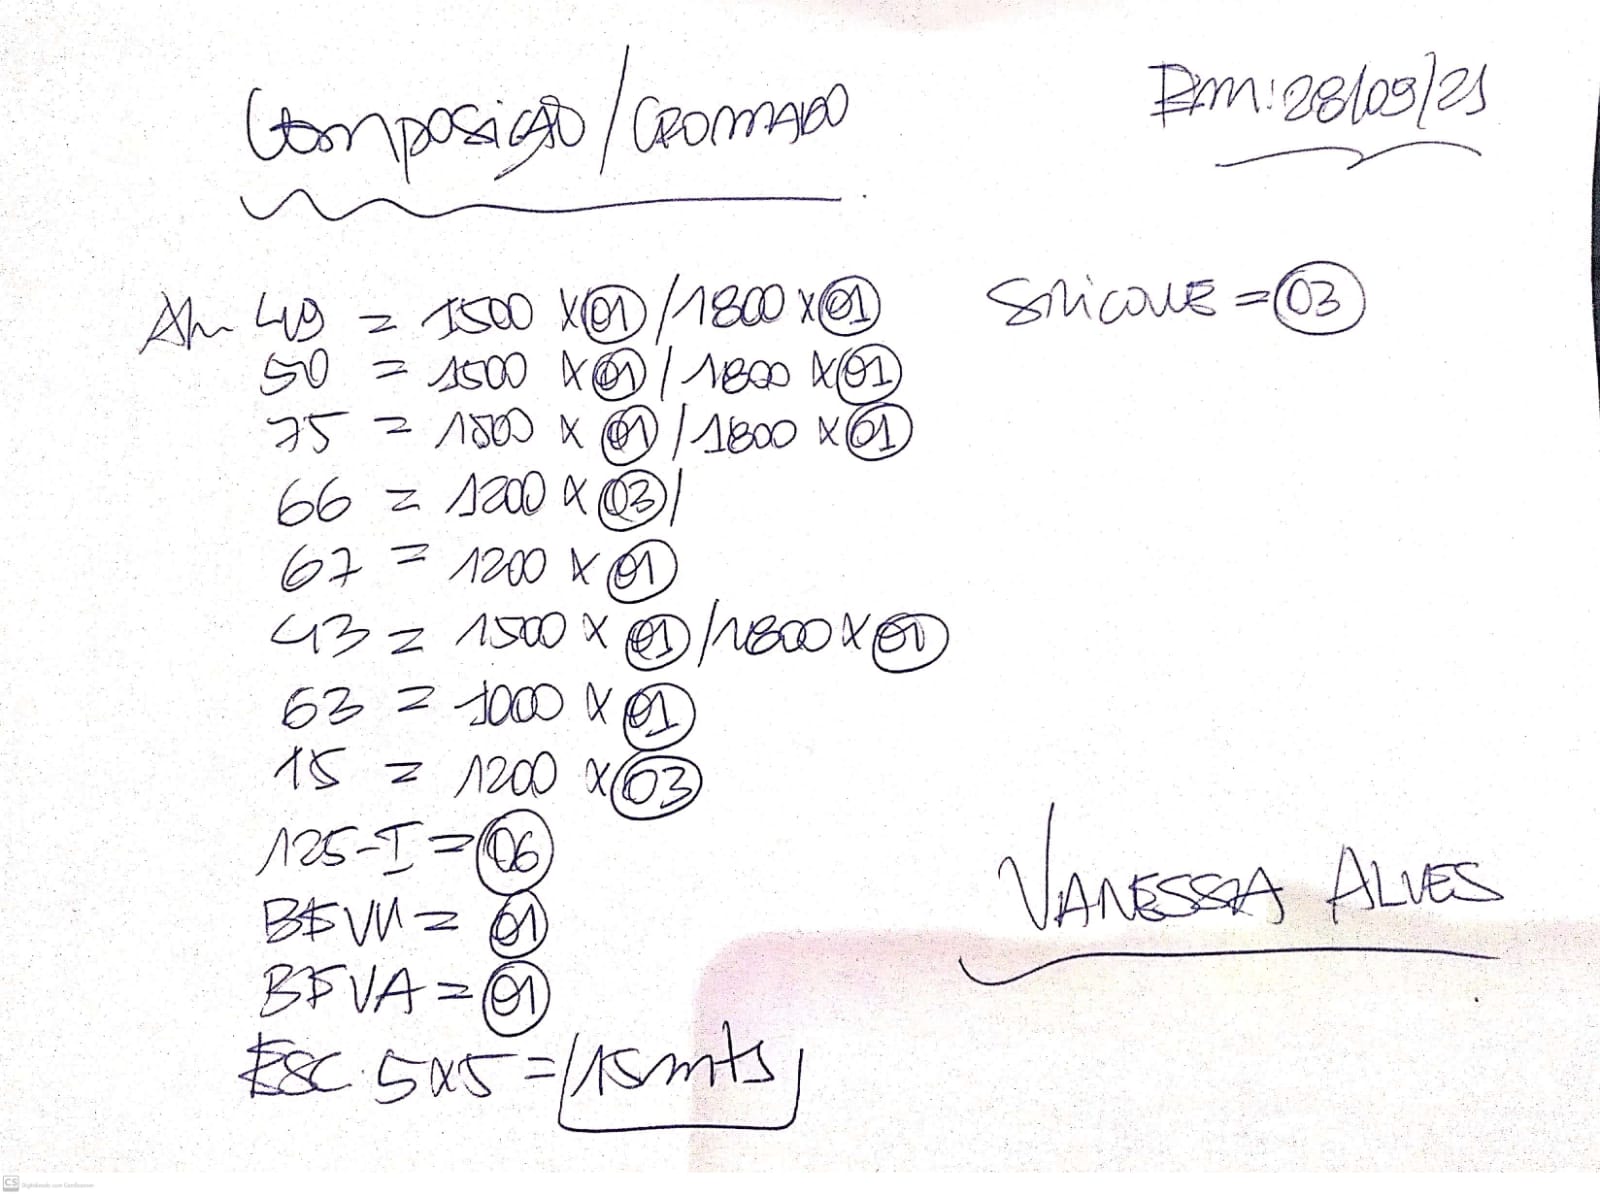 Composição/CROMADO
Em: 28/09/21
AL 49 = 1500 x 01 / 1800 x 01
SILICONE = 03
50 = 1500 x 01 / 1800 x 01
75 = 1500 x 01 / 1800 x 01
66 = 1200 x 03 /
67 = 1200 x 01
43 = 1500 x 01 / 1800 x 01
63 = 1000 x 01
15 = 1200 x 03
125-I = 06
BFVM = 01
BFVA = 01
ESC. 5x5 = 15mts
VANESSA ALVES
CS Digitalizado com CamScanner